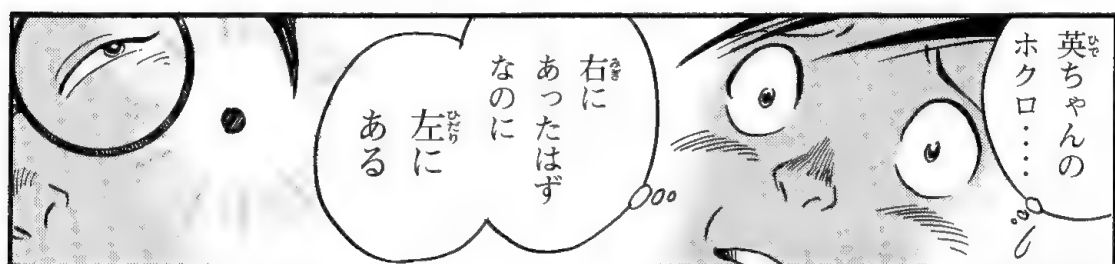 英ちゃんの
ホクロ‥‥‥
右に
あったはず
なのに
左に
ある